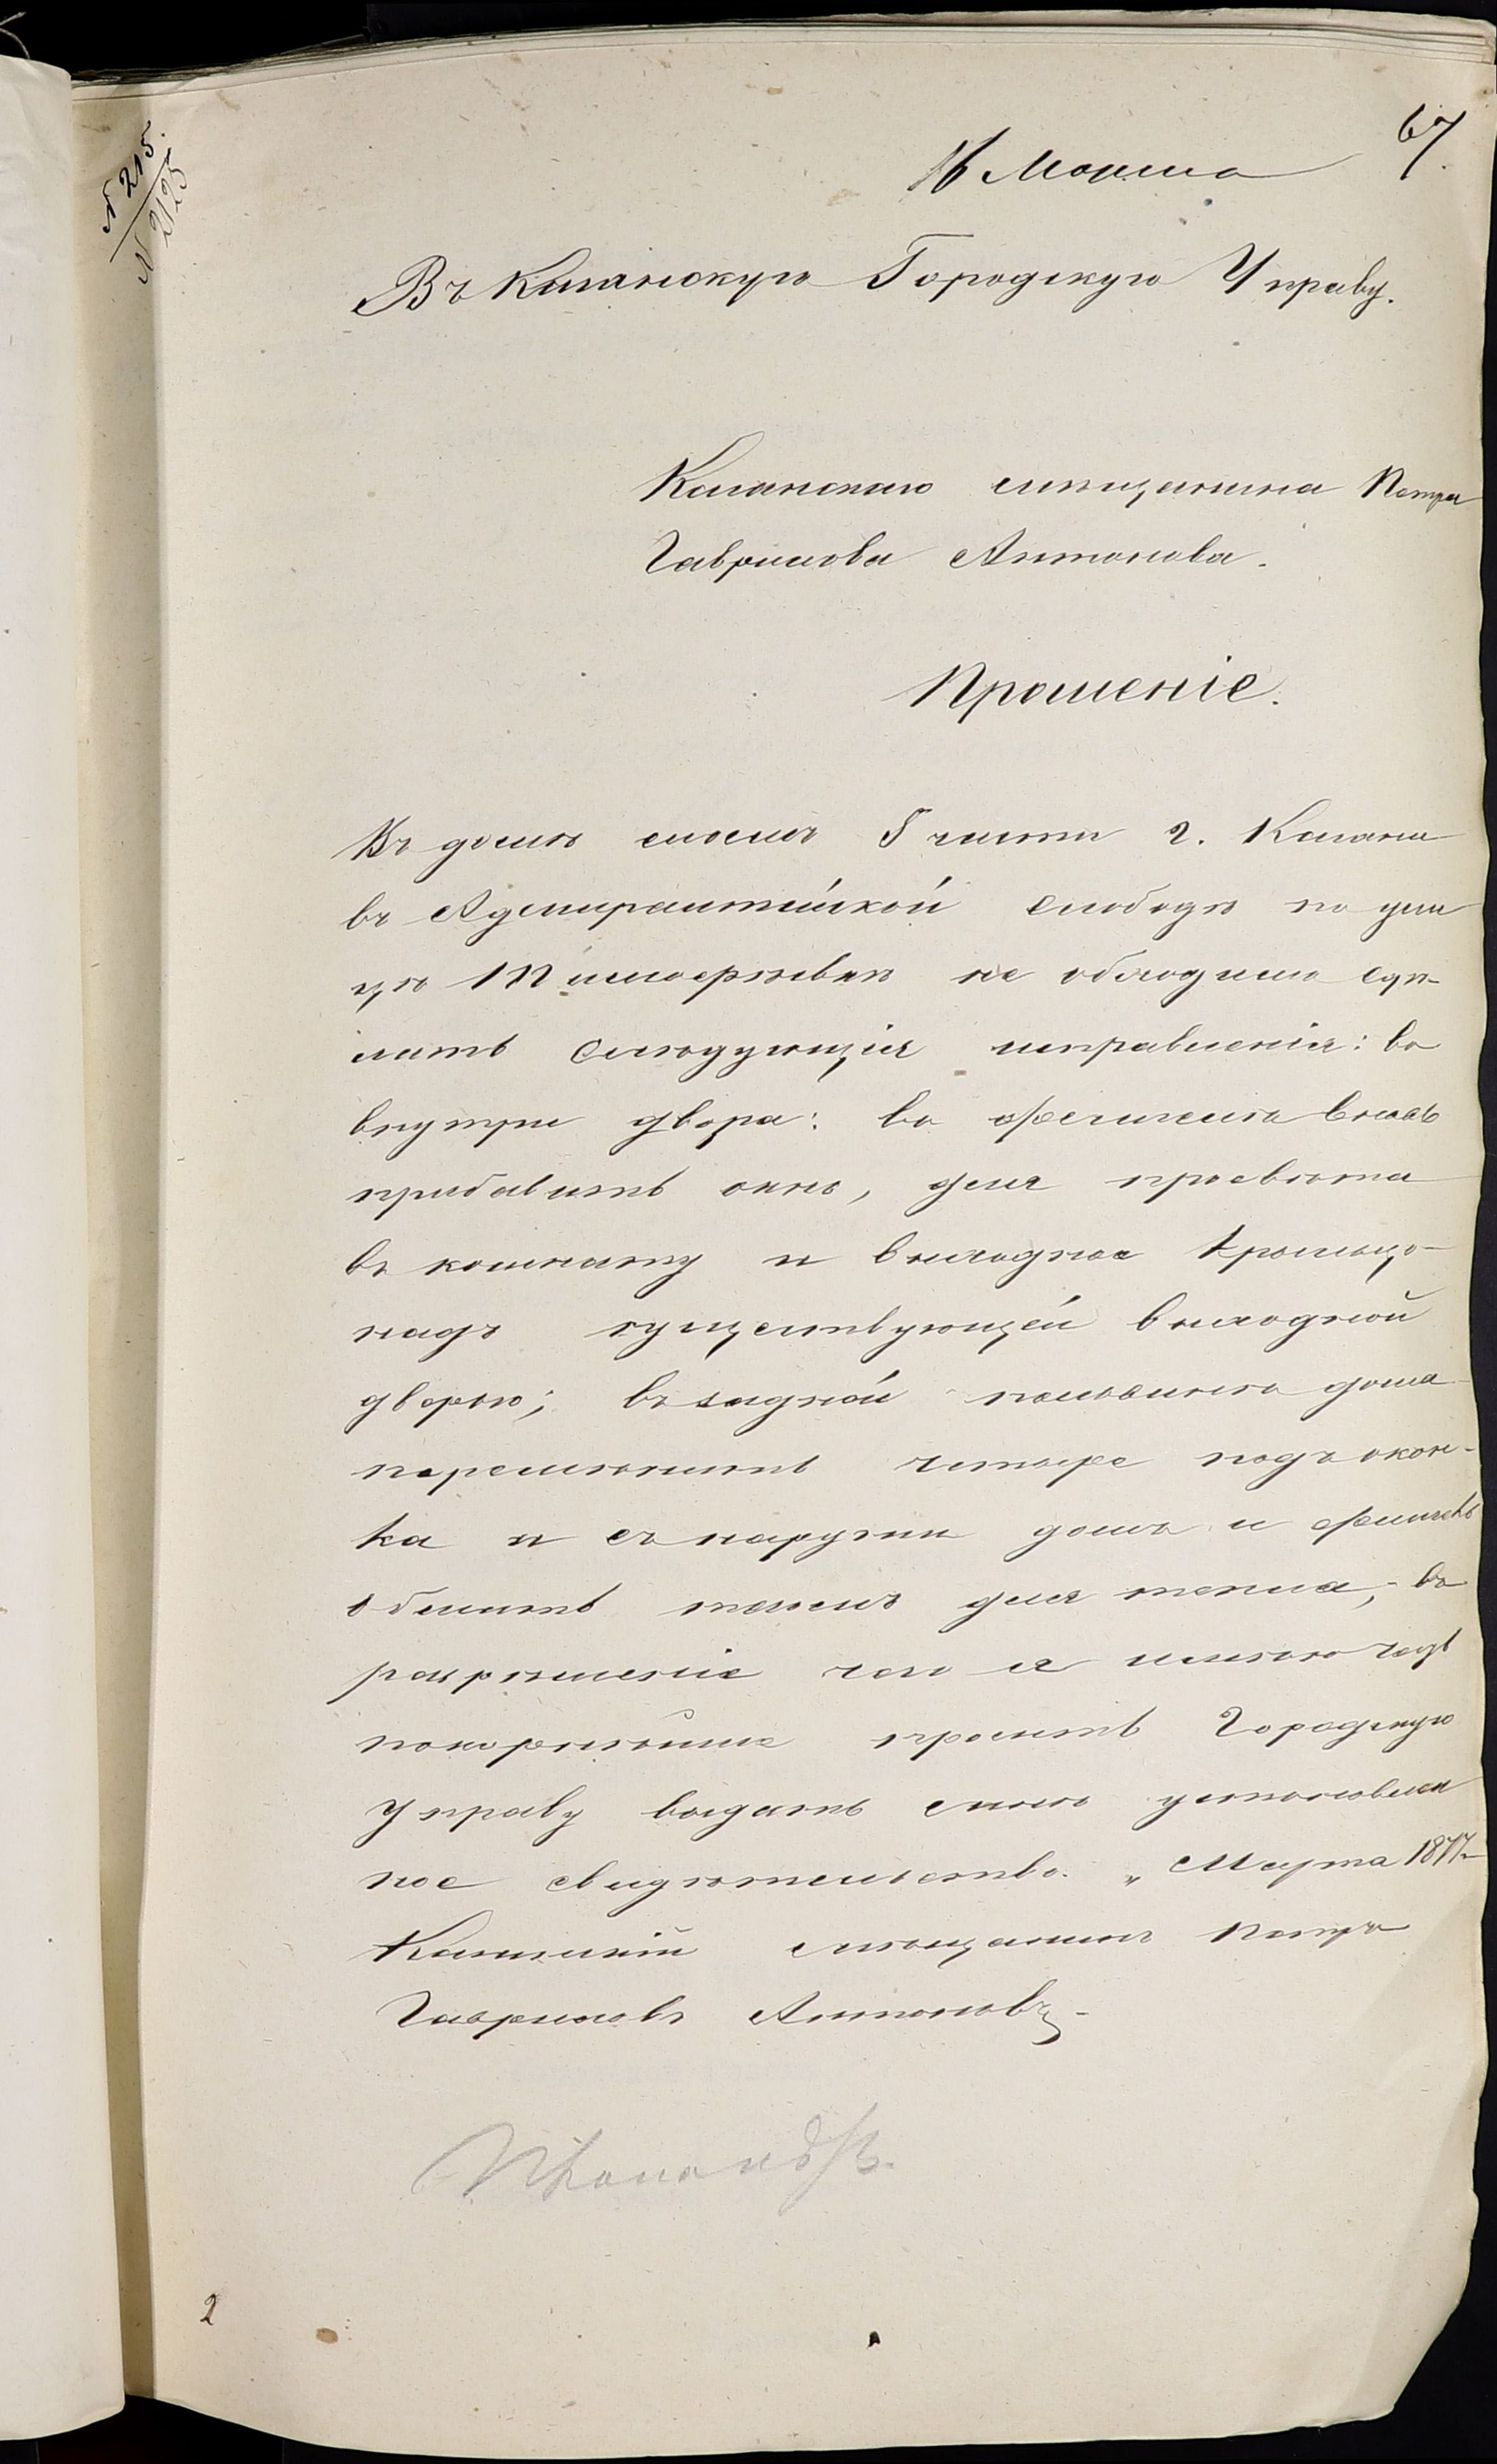 67
№ 215.
№ 2125
16 Марта
Въ Казанскую Городскую Управу.
Казанскаго мѣщанина Петра
Гаврилова Антонова.
Прошеніе.
Въ домѣ моемъ 5 части г. Казани
въ Адмиралтейской слободѣ по ули
цѣ не обходимо сдѣ-
лать слѣдующія исправленія: во
внутри двора: во флигелѣ вновь
прибавить окно, для просвѣта
въ комнату и выходное крыльцо
надъ существующей выходной
дверью; въ задней половинѣ дома
перемѣнить четыре подъ окон-
ка и съ наружи домъ и флигель
обшить тесомъ для тепла; въ
разрѣшеніе чего я имѣю честь
покорнѣйше просить Городскую
Управу выдать мнѣ установлен
ное свидѣтельство. „ Марта 1877
Казанскій мѣщанинъ Петръ
Гавриловъ Антоновъ
2